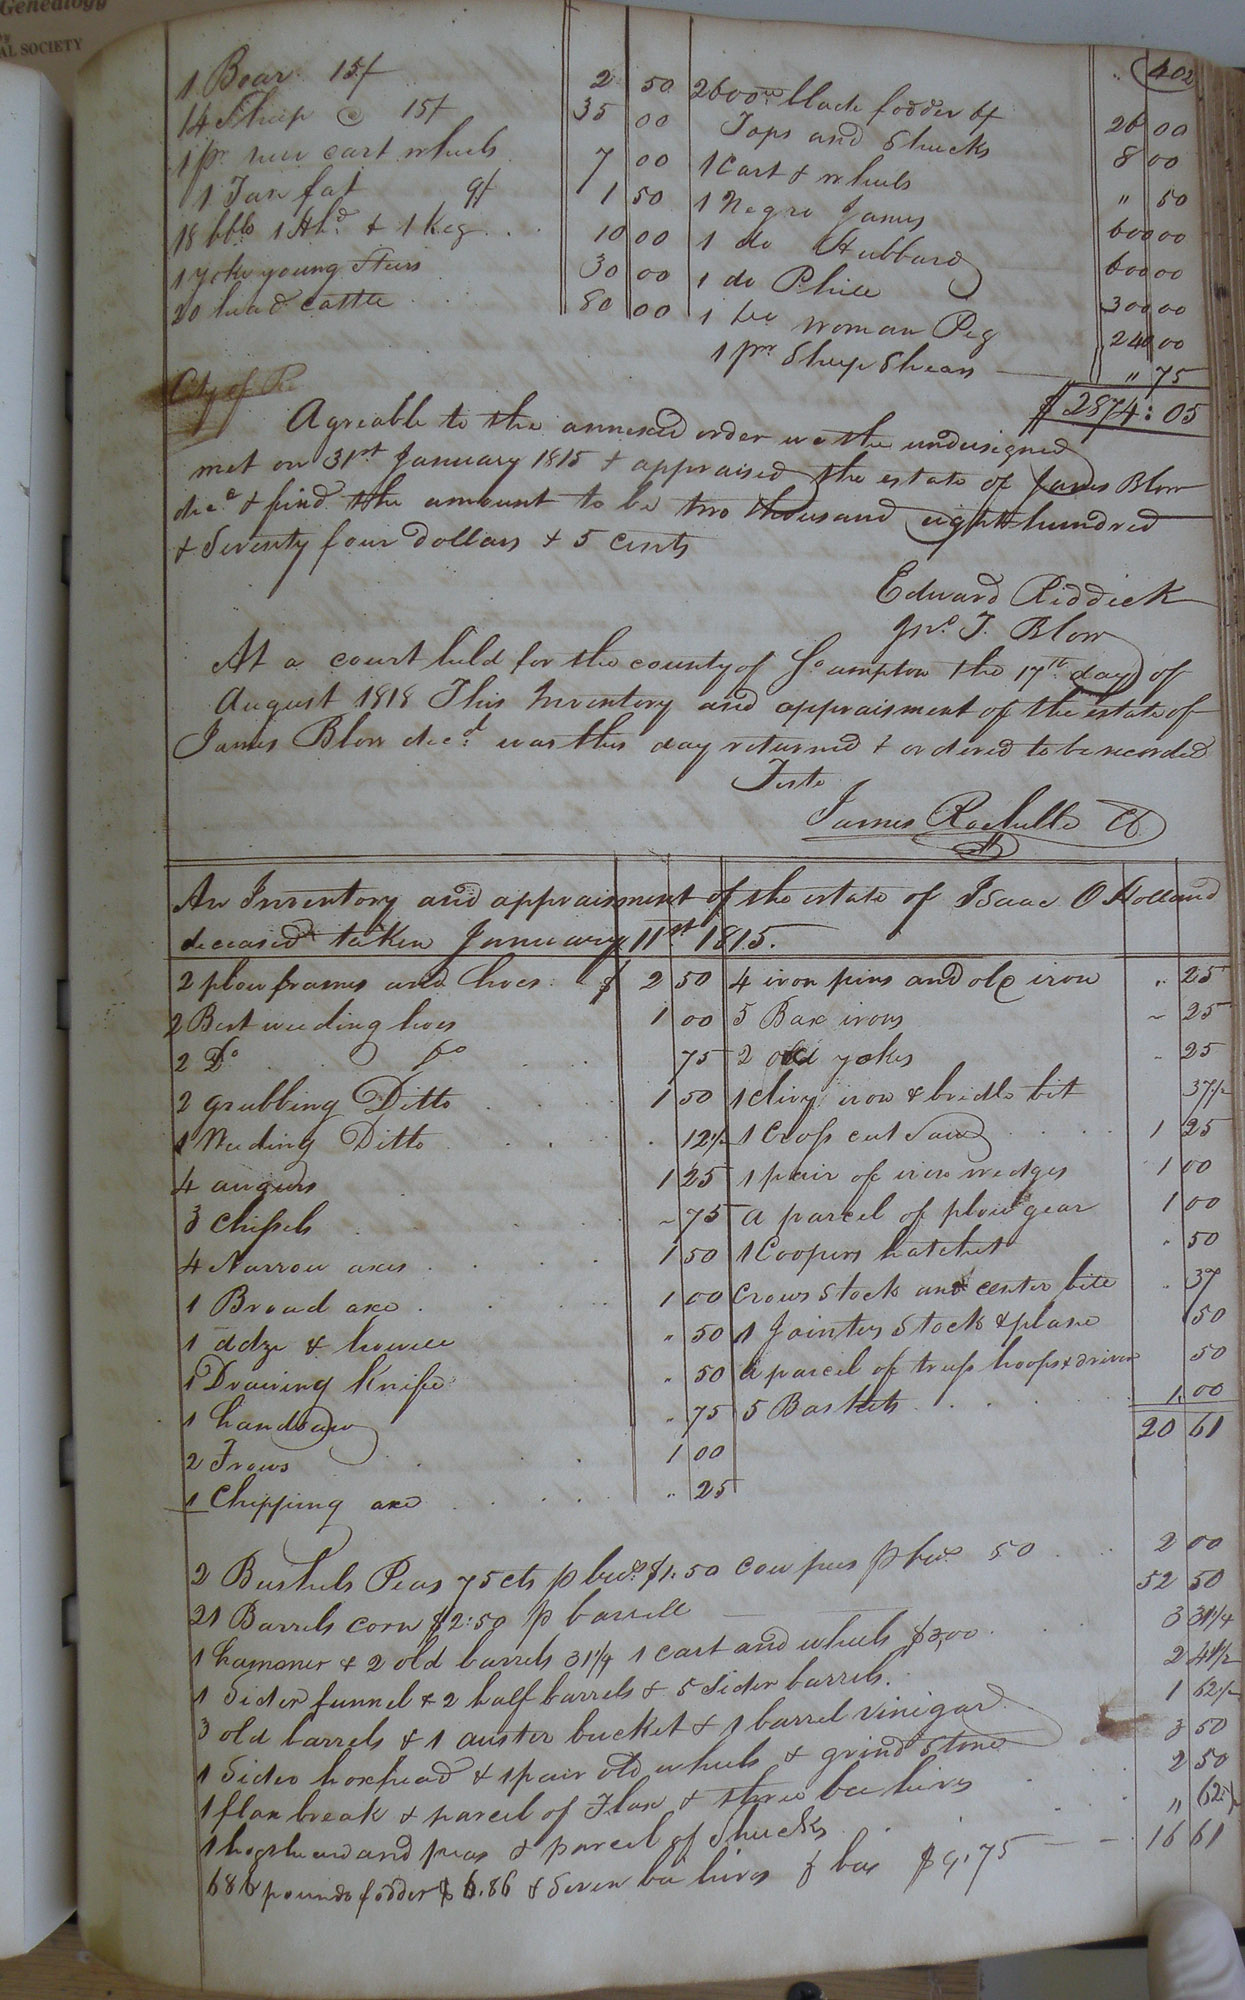 Genealogy
AL SOCIETY
402
1 Boar 15/ 2 50
14 Sheep @ 15/ 35 00
1 pr new cart wheels 7 00
1 Tan fat 9/ 1 50
18 bbls 1 Hhd & 1 Keg 10 00
1 yoke young Steers 30 00
20 head cattle 80 00
2600 wt blade fodder 6/ 26 00
Tops and Shucks 8 00
1 Cart & wheels " 50
1 Negro James 600 00
1 do Hubbard 600 00
1 do Phill 300 00
1 do woman Peg 240 00
1 pr Sheep Shears " 75
$ 2874: 05
City of Ri
Agreable to the annexed order we the undersigned
met on 31st January 1815 & appraised the estate of James Blow
decd & find the amount to be two thousand eight hundred
& Seventy four dollars & 5 cents
Edward Riddick
Jno. T. Blow
At a court held for the county of So ampton the 17th day of
August 1818 This Inventory and appraisment of the estate of
James Blow decd was this day returned & ordered to be recorded
Teste
James Rochelle Ck
An Inventory and appraisment of the estate of Isaac O Holland
deceased taken January 11st 1815.
2 plow frames and hoes $ 2 50
2 Best weeding hoes 1 00
2 Do Do 75
2 grubbing Ditto 1 50
1 Weeding Ditto 12½
4 augurs 1 25
3 Chissels 75
4 Narrow axes 1 50
1 Broad axe 1 00
1 adze & howell " 50
1 Drawing Knife " 50
1 handsaw " 75
2 Frows 1 00
1 Chipping axe " 25
4 iron pins and old iron " 25
5 Bar irons 25
2 old yokes 25
1 clivy iron & bridle bit 37½
1 Cross cut Saw 1 25
1 pair of iron wedges 1 00
a parcel of plow gear 1 00
1 Coopers hatchet " 50
Crows Stock and center bitt " 37
1 Jointer Stock & plane 50
a parcel of truss hoops & driver 50
5 Baskets 1.00
20 61
2 Bushels Peas 75 cts p bus. $1.50 cow peas p bus. 50 2 00
21 Barrels corn $2:50 p barrell 52 50
1 hamoner & 2 old barrels 31¼ 1 cart and wheels $3,00 3 31¼
1 Sider funnel & 2 half barrels & 5 Sider barrels. 2 41½
3 old barrels & 1 auster bucket & 1 barrel vinigar 1 62½
1 Sider hoxhead & 1 pair old wheels & grind Stone 3 50
1 flax break & parcel of Flax & three bee hives 2 50
1 hogshead and peas & parcel of Shucks " 62½
686 pounds fodder $6.86 & Seven bee hives & bees $9.75 16 61